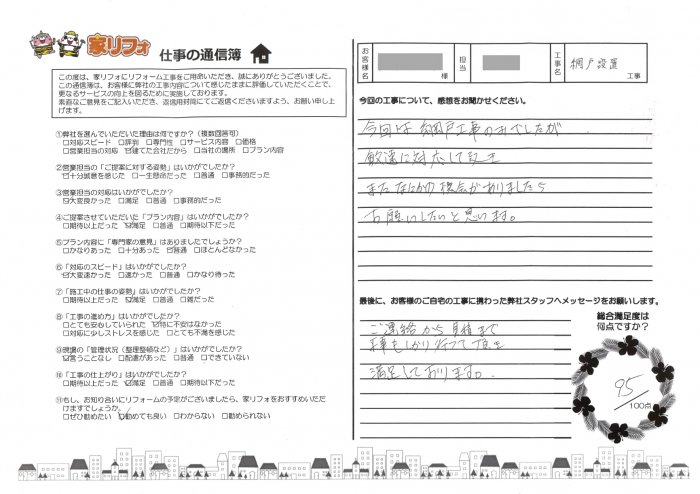 家リフォ 仕事の通信簿
この度は、家リフォにリフォーム工事をご用命いただき、誠にありがとうございました。
この通信簿は、お客様に弊社の工事内容について感じたままに評価していただくことで、
更なるサービスの向上を図るために実施しております。
素直なご意見をご記入いただき、返信用封筒にてご返信くださいますよう、お願い申し上
げます。
①弊社を選んでいただいた理由は何ですか？（複数回答可）
□対応スピード □評判 □専門性 □サービス内容 □価格
□営業担当の対応 ☑建てた会社だから □当社の場所 □プラン内容
②営業担当の「ご提案に対する姿勢」はいかがでしたか？
☑十分誠意を感じた □一生懸命だった □普通 □事務的だった
③営業担当の対応はいかがでしたか？
☑大変良かった □満足 □普通 □事務的だった
④ご提案させていただいた「プラン内容」はいかがでしたか？
□期待以上だった ☑満足 □普通 □期待以下だった
⑤プラン内容に「専門家の意見」はありましたでしょうか？
□かなりあった □十分あった ☑普通 □ほとんどなかった
⑥「対応のスピード」はいかがでしたか？
☑大変速かった □速かった □普通 □かなり待った
⑦「施工中の仕事の姿勢」はいかがでしたか？
□期待以上だった ☑満足 □普通 □雑だった
⑧「工事の進め方」はいかがでしたか？
□とても安心していられた ☑特に不安はなかった
□対応に少しストレスを感じた □とても不満を感じた
⑨現場の「管理状況（整理整頓など）」はいかがでしたか？
☑言うことなし □配慮があった □普通 □できていない
⑩「工事の仕上がり」はいかがでしたか？
□期待以上だった ☑満足 □普通 □期待以下だった
⑪もし、お知り合いにリフォームの予定がございましたら、家リフォをおすすめいただ
けますでしょうか。
□ぜひ勧めたい ☑勧めても良い □わからない □勧められない
お客様名
担当
工事名 網戸設置 工事
今回の工事について、感想をお聞かせください。
今回は網戸工事のみでしたが
敏速に対応して頂き
またなにかの機会がありましたら
お願いしたいと思います。
最後に、お客様のご自宅の工事に携わった弊社スタッフへメッセージをお願いします。
ご連絡から見積まで
事もしっかり行って頂き
満足しております。
総合満足度は
何点ですか？
95
/100点